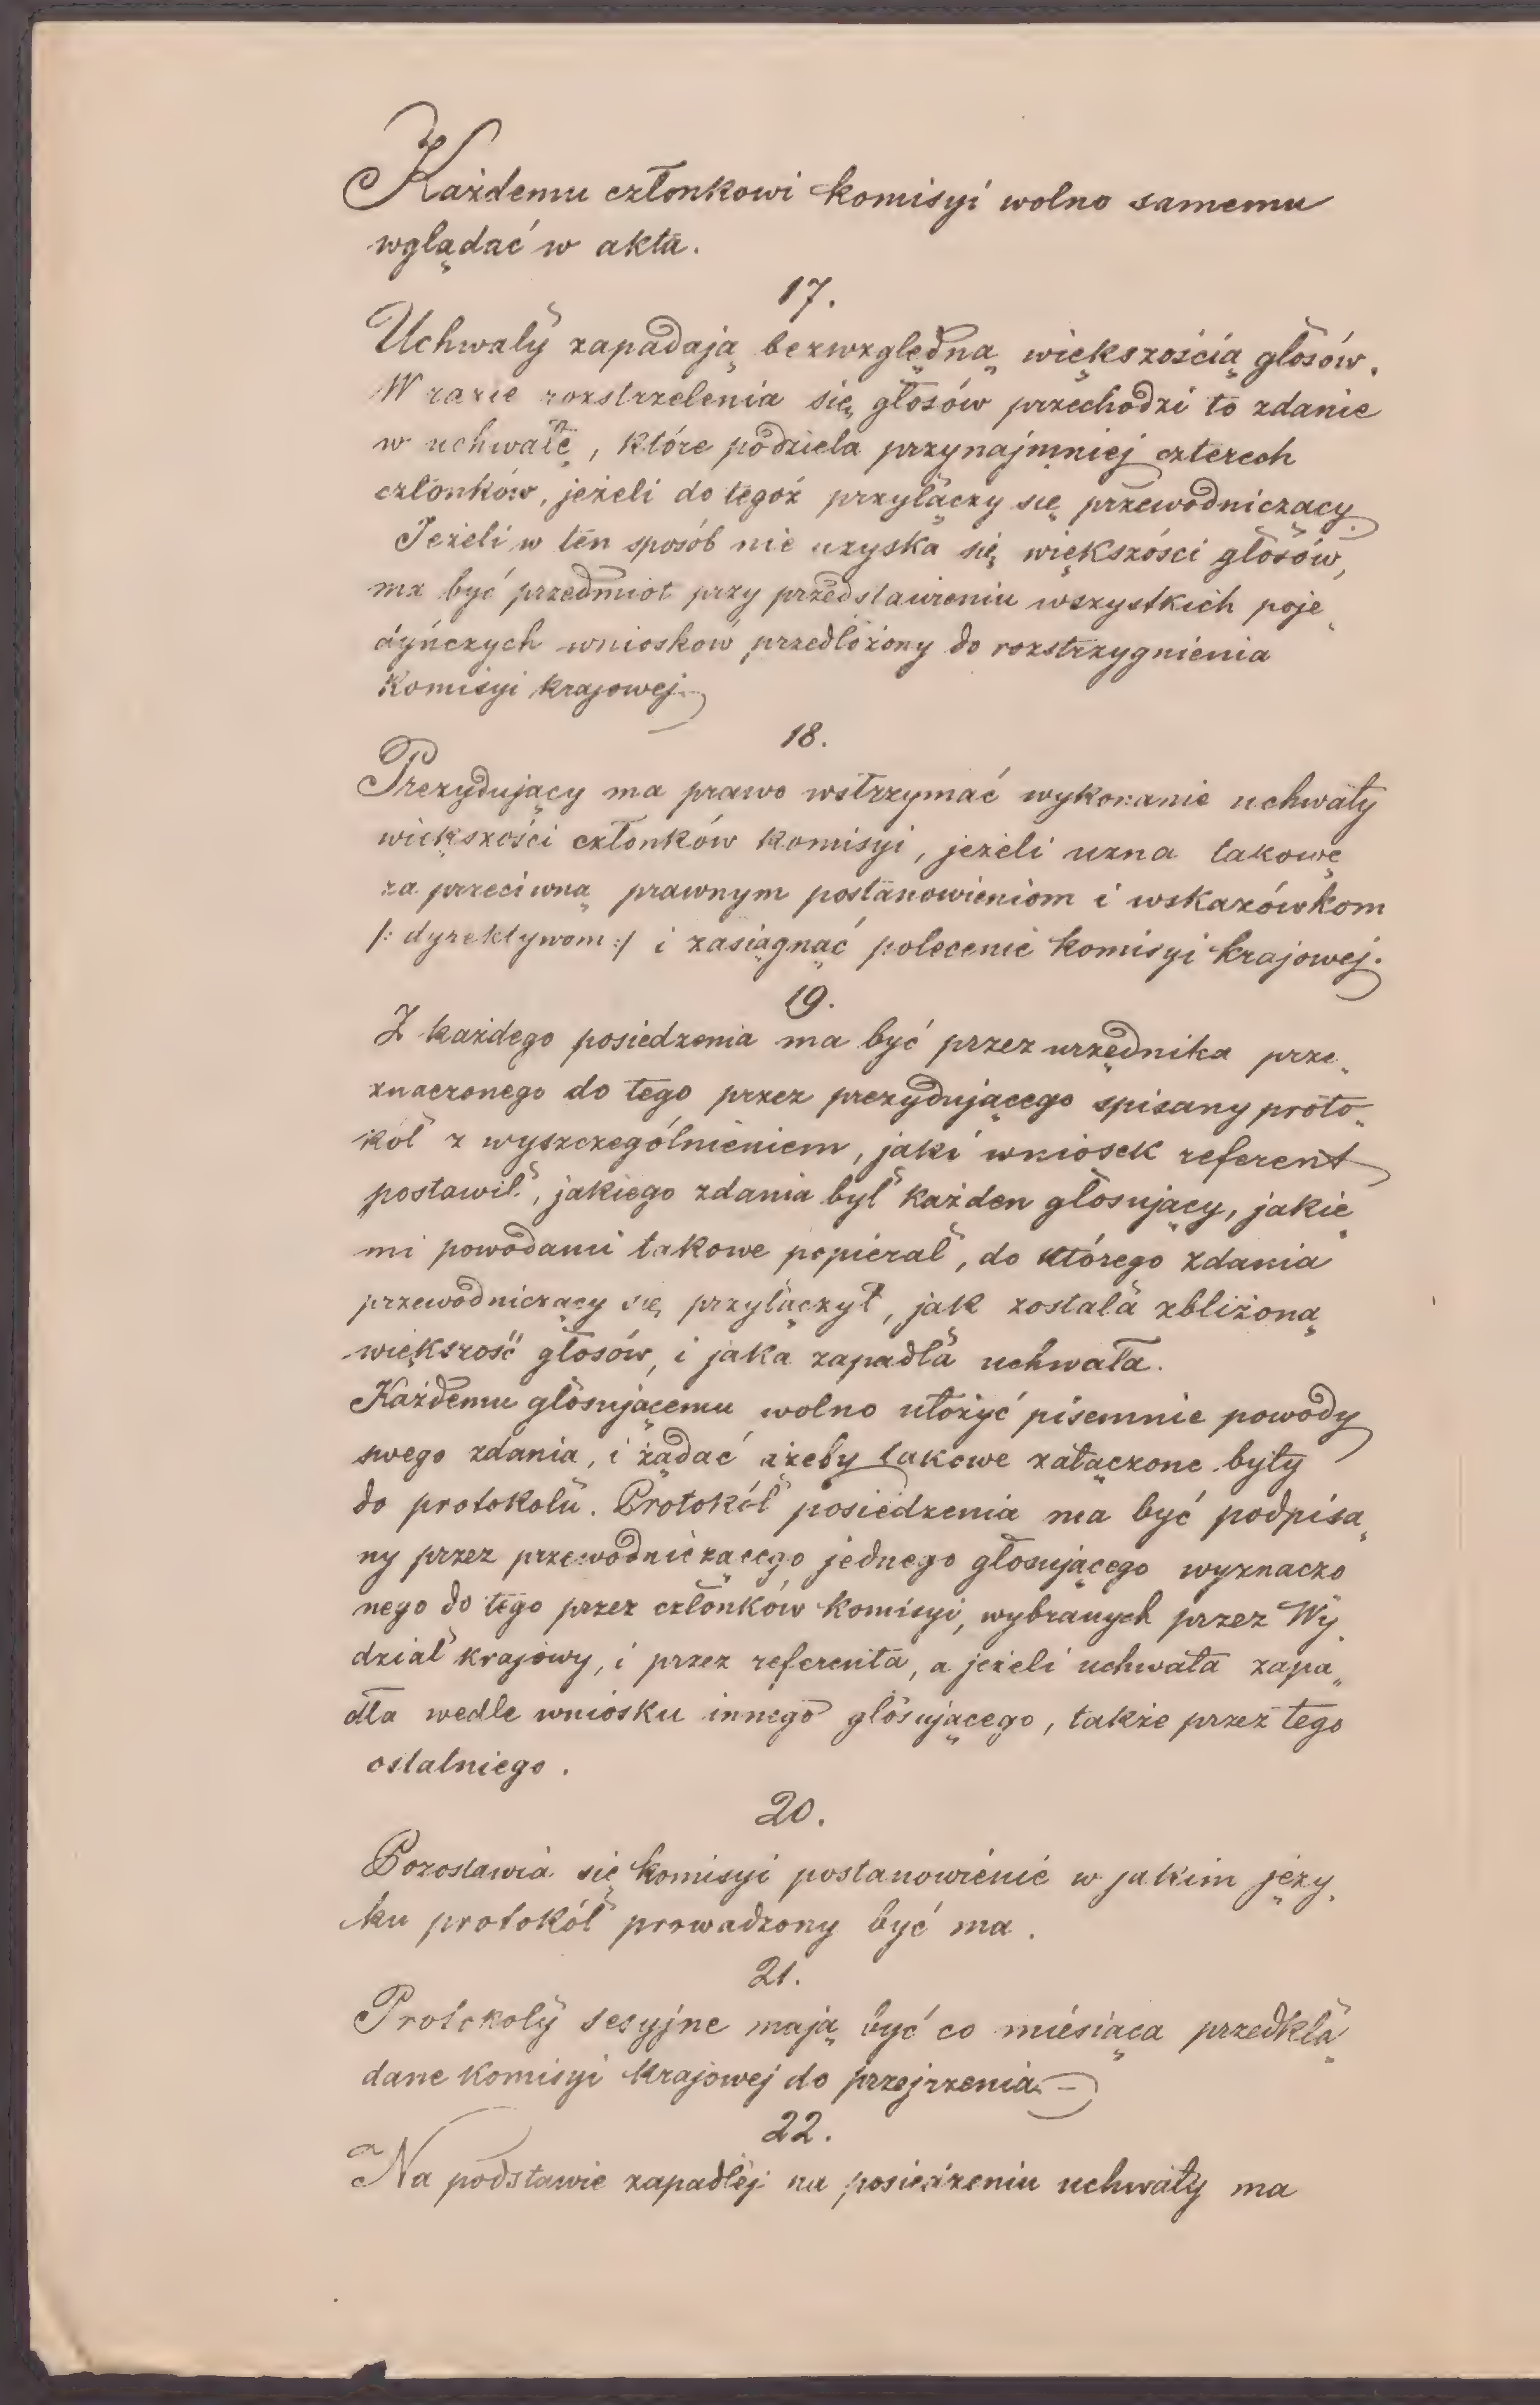 Każdemu członkowi komisyi wolno samemu
wglądać w akta.
17.
Uchwały zapadają bezwzględną większością głosów.
W razie rozstrzelenia się głosów przechodzi to zdanie
w uchwałę, które podziela przynajmniej czterech
członków, jeżeli do tegoż przyłączy się przewodniczący.
Jeżeli w ten sposób nie uzyska się większości głosów,
ma być przedmiot przy przedstawieniu wszystkich poje„
dyńczych wniosków przedłożony do rozstrzygnienia
Komisyi krajowej.
18.
Prezydujący ma prawo wstrzymać wykonanie uchwały
większości członków komisyi, jeżeli uzna takowę
za przeciwną prawnym postanowieniom i wskazówkom
/: dyrektywom :/ i zasiągnąć polecenie komisyi krajowej.
19.
Z każdego posiedzenia ma być przez urzędnika prze„
znaczonego do tego przez prezydującego spisany proto„
kół z wyszczególnieniem, jaki wniosek referent
postawił, jakiego zdania był każden głosujący, jakie„
mi powodami takowe popierał, do którego zdania
przewodniczący się przyłączył, jak została zbliżoną
większość głosów, i jaka zapadła uchwała.
Każdemu głosującemu wolno ułożyć pisemnie powody
swego zdania, i żądać ażeby takowe załączone były
do protokołu. Protokół posiedzenia ma być podpisa„
ny przez przewodniczącego jednego głosującego wyznaczo
nego do tego przez członków komisyi, wybranych przez Wy„
dział krajowy, i przez referenta, a jeżeli uchwała zapa„
dła wedle wniosku innego głosującego, także przez tego
ostatniego.
20.
Pozostawia się komisyi postanowienie w jakim języ„
ku protokół prowadzony być ma.
21.
Protokoły sesyjne mają być co miesiąca przedkła„
dane komisyi krajowej do przejrzenia. –
22.
Na podstawie zapadłej na posiedzeniu uchwały ma